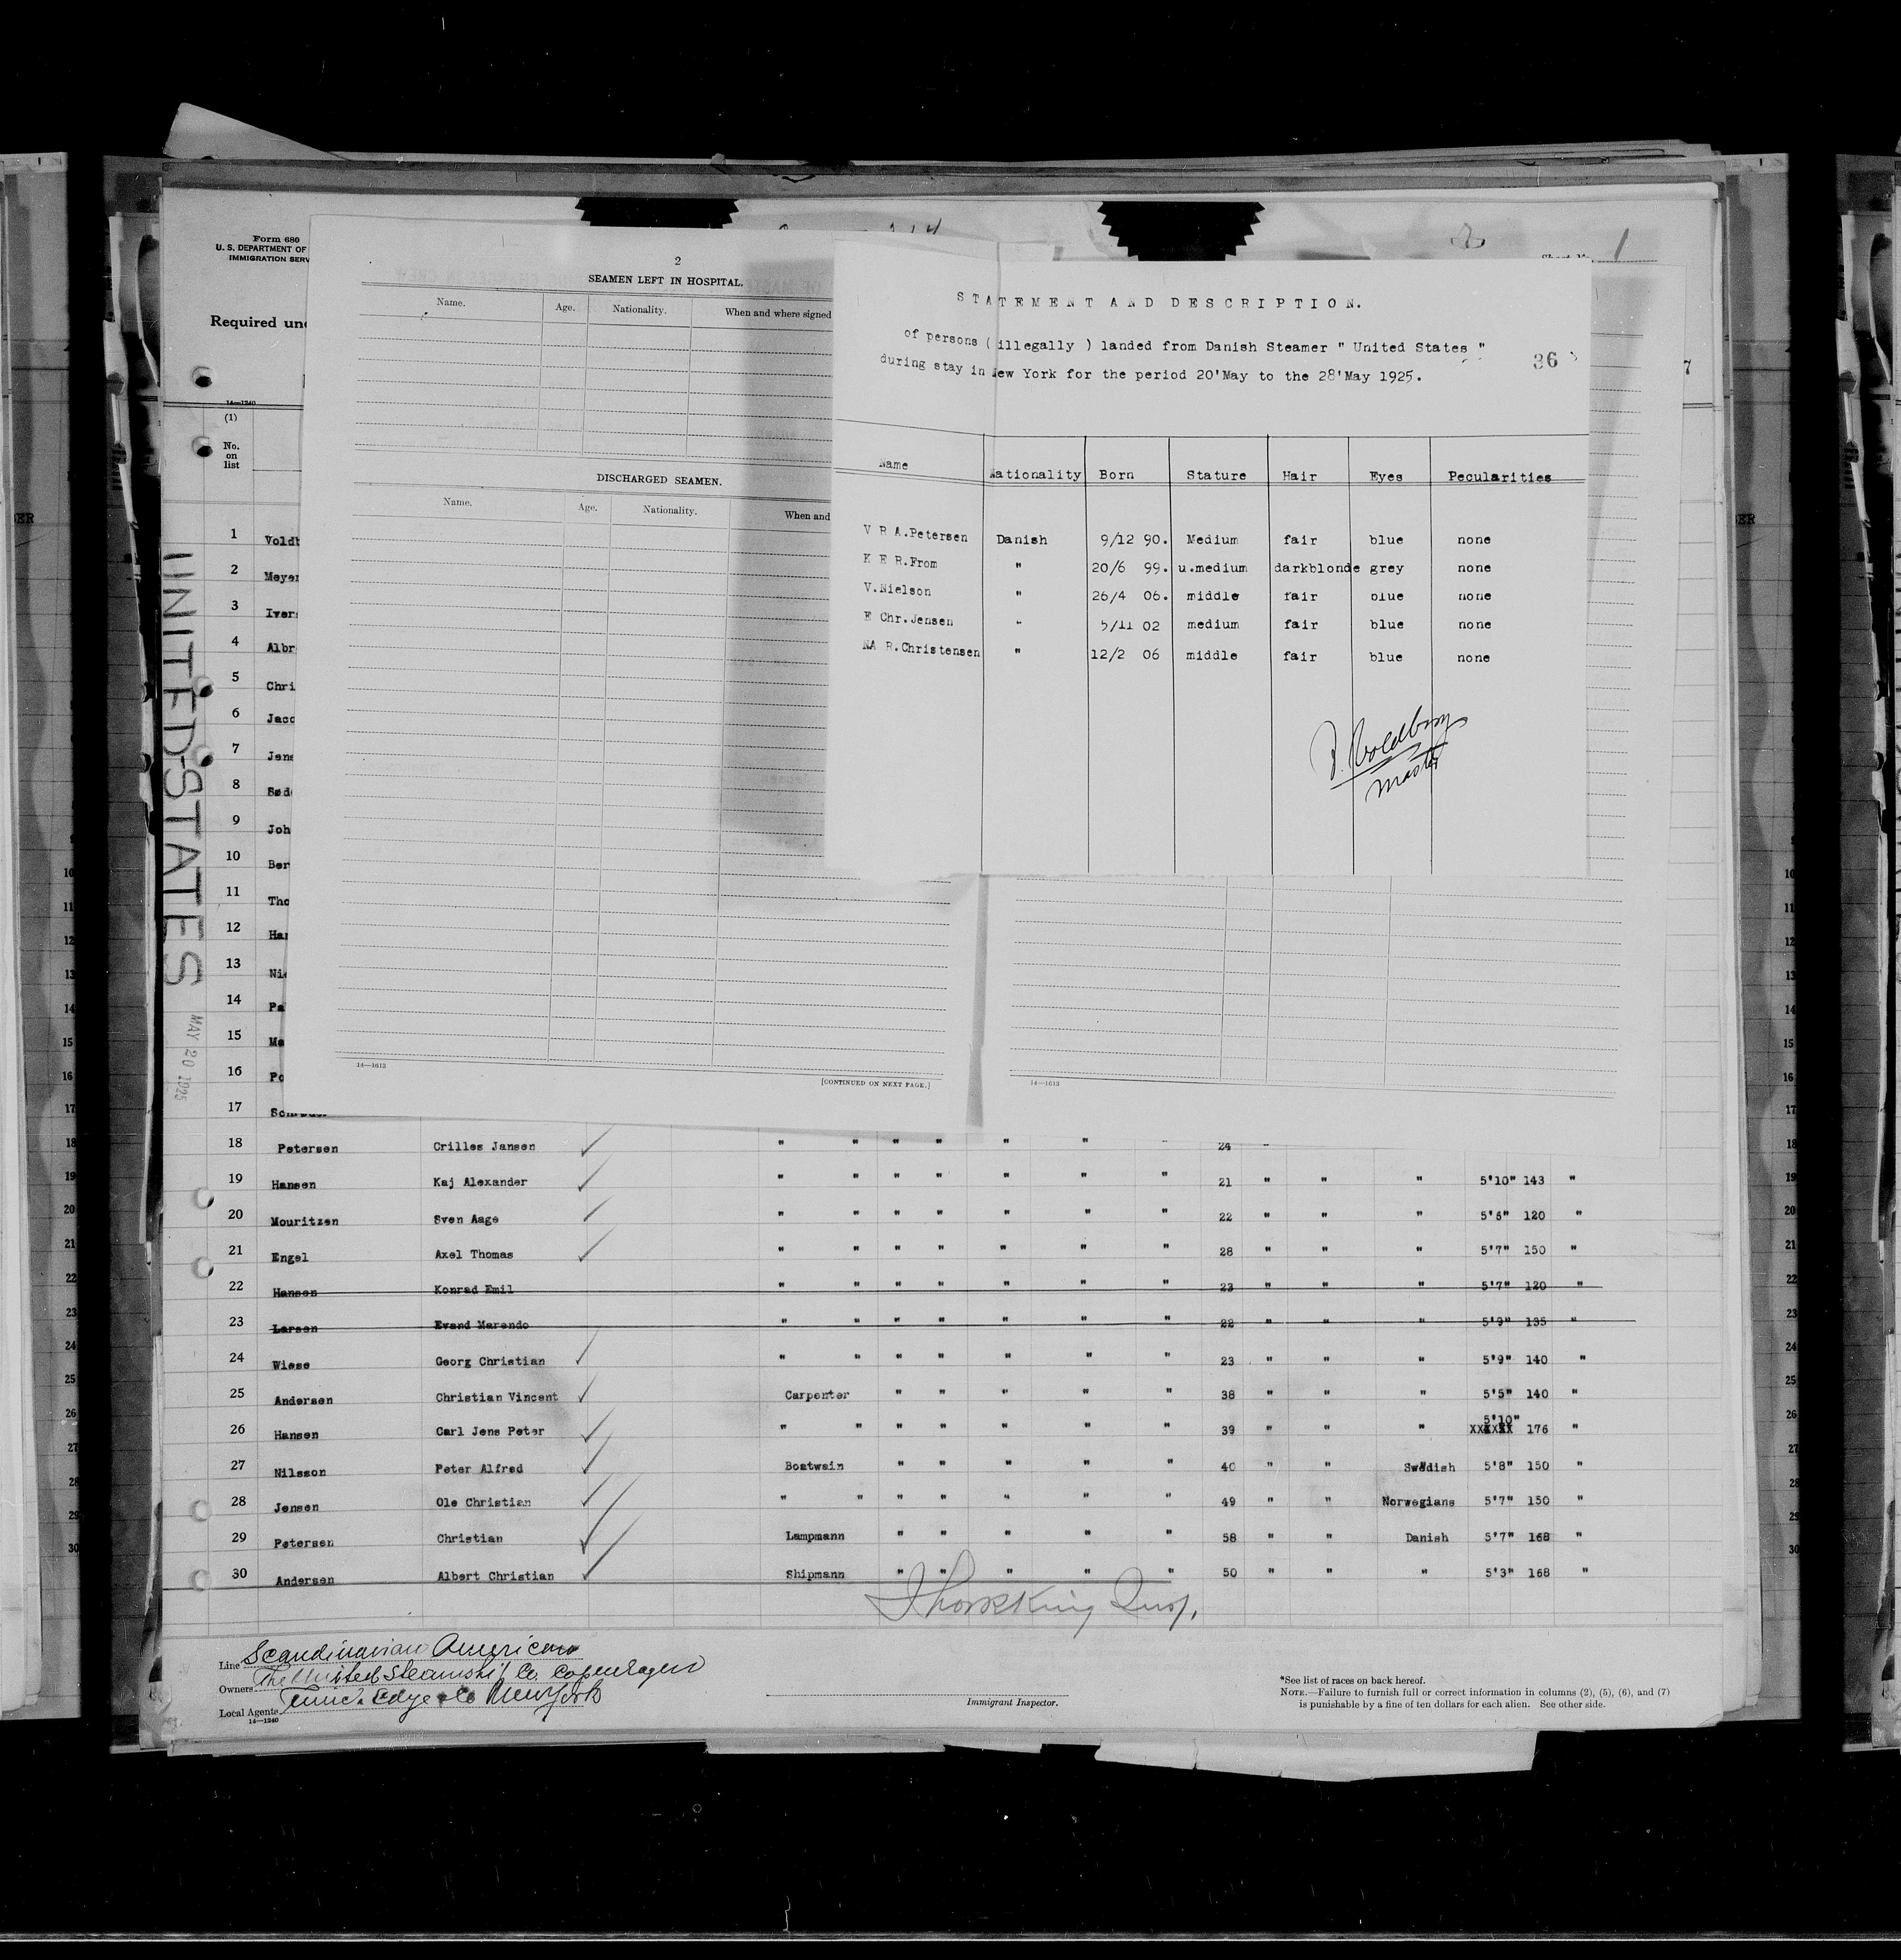 Form 680
U. S. DEPARTMENT OF
IMMIGRATION SERV
Required und
14—1240
(1)
No.
on
list
UNITED-STATES
MAY 20 1925
1
7
2
SEAMEN LEFT IN HOSPITAL.
Name. Age. Nationality. When and where signed
DISCHARGED SEAMEN.
Name. Age. Nationality. When and
14—1613
[CONTINUED ON NEXT PAGE.]
14—1613
STATEMENT AND DESCRIPTION.
of persons ( illegally ) landed from Danish Steamer " United States "
during stay in New York for the period 20'May to the 28'May 1925.
36
Name Nationality Born Stature Hair Eyes Pecularities
V R A.Petersen Danish 9/12 90. Medium fair blue none
K E R.From " 20/6 99. u.medium darkblonde grey none
V.Nielson " 26/4 06. middle fair blue none
E Chr.Jensen " 5/11 02 medium fair blue none
NA R.Christensen " 12/2 06 middle fair blue none
Master
1 Voldb
2 Meyer
3 Ivers
4 Albr
5 Chri
6 Jaco
7 Jens
8 Søde
9 Joh
10 Ber
11 Tho
12 Han
13 Nie
14 Pa
15 Ma
16 Po
17
18 Petersen Crilles Jansen " " " " " " " 24
19 Hansen Kaj Alexander " " " " " " " 21 " " " 5'10" 143 "
20 Mouritzen Sven Aage " " " " " " " 22 " " " 5'6" 120 "
21 Engel Axel Thomas " " " " " " " 28 " " " 5'7" 150 "
22 Hansen Konrad Emil " " " " " " " 23 " " " 5'7" 120 "
23 Larsen Evand Marendo " " " " " " " 22 " " " 5'9" 135 "
24 Wiese Georg Christian " " " " " " " 23 " " " 5'9" 140 "
25 Andersen Christian Vincent Carpenter " " " " " 38 " " " 5'5" 140 "
26 Hansen Carl Jens Peter " " " " " " " 39 " " " 5'10" 176 "
27 Nilsson Peter Alfred Boatwain " " " " " 40 " " Swedish 5'8" 150 "
28 Jensen Ole Christian " " " " " " " 49 " " Norwegians 5'7" 150 "
29 Petersen Christian Lampmann " " " " " 58 " " Danish 5'7" 168 "
30 Andersen Albert Christian Shipmann " " " " " 50 " " " 5'3" 168 "
Line Scandinavian American
Owners The United Steamship Co. Copenhagen
Local Agents Funch Edye & Co New York
14—1240
Immigrant Inspector.
*See list of races on back hereof.
NOTE.—Failure to furnish full or correct information in columns (2), (5), (6), and (7)
is punishable by a fine of ten dollars for each alien. See other side.